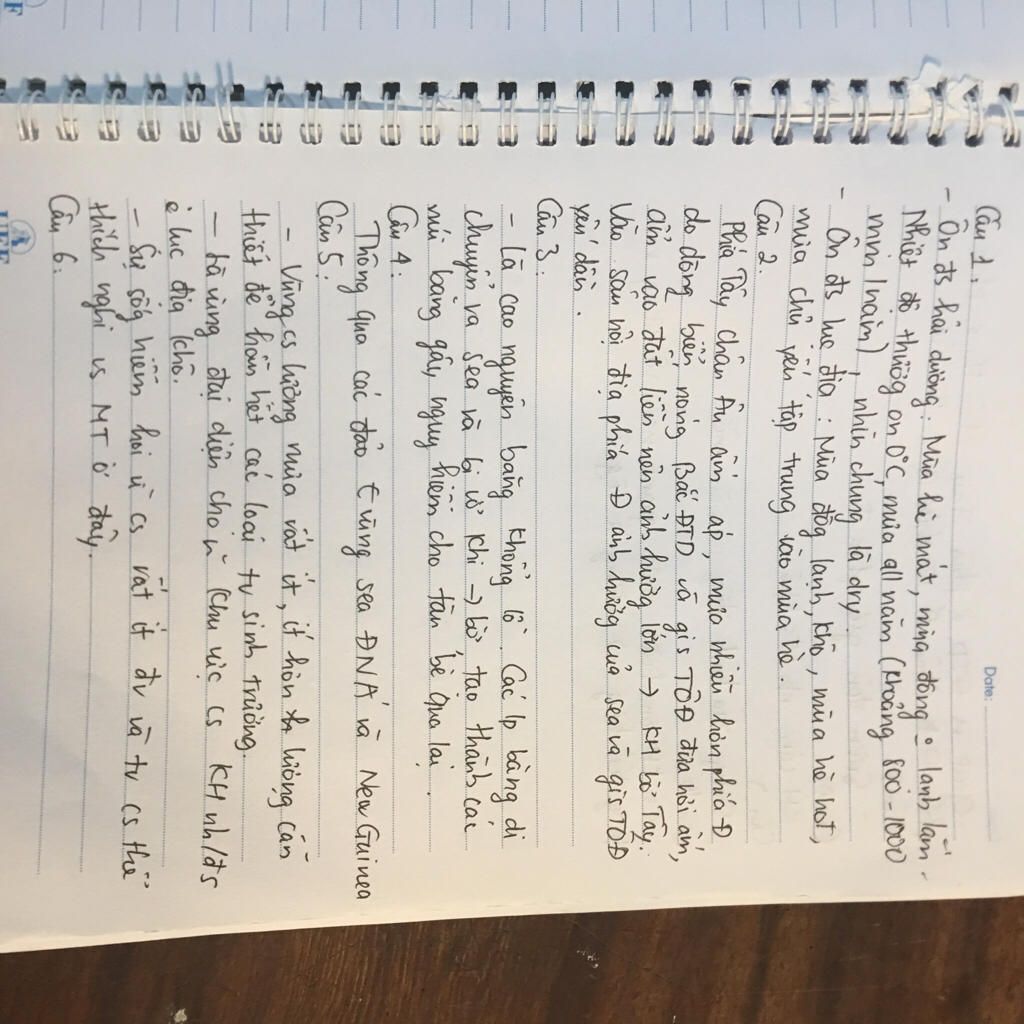 Date:
Câu 1:
- Ôn đs hải dương: Mùa hè mát, mùa đông ± lạnh lắm.
Nhiệt độ thường on 0°C, mưa all năm (khoảng 800-1000
mm/năm), nhìn chung là dry
- Ôn đs lục địa: Mùa đông lạnh, khô, mùa hè hot,
mưa chủ yếu tập trung vào mùa hè.
Câu 2.
Phía Tây châu Âu ấm áp, mưa nhiều hơn phía Đ
do dòng biển nóng Bắc ĐTD và gió TÔĐ đưa hơi ấm,
ẩm vào đất liền nên ảnh hưởng lớn → KH bờ Tây.
Vào sâu nội địa phía Đ ảnh hưởng của sea và gió TÔĐ
yếu dần.
Câu 3:
- Là cao nguyên băng khổng lồ. Các lp băng di
chuyển ra sea và bị vỡ khi → bờ, tạo thành các
núi băng gây nguy hiểm cho tàu bè qua lại.
Câu 4:
Thông qua các đảo vùng sea ĐNÁ và New Guinea
Câu 5:
- Vùng cs lượng mưa rất ít, ít hơn lượng cần
thiết để hầu hết các loài tv sinh trưởng.
- Là vùng đại diện cho khu vực cs KH nh/đs
lục địa khô.
- Sự sống hiếm hoi vì cs rất ít đv và tv cs thể
thích nghi vs MT ở đây.
Câu 6: